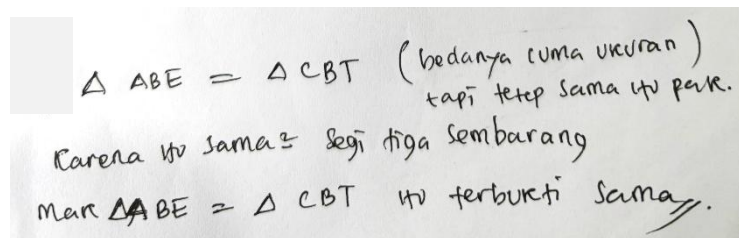 △ ABE = △ CBT (bedanya cuma ukuran)
tapi tetep sama itu pak.
Karena itu sama2 segi tiga sembarang
Mak △ABE = △ CBT itu terbukti sama